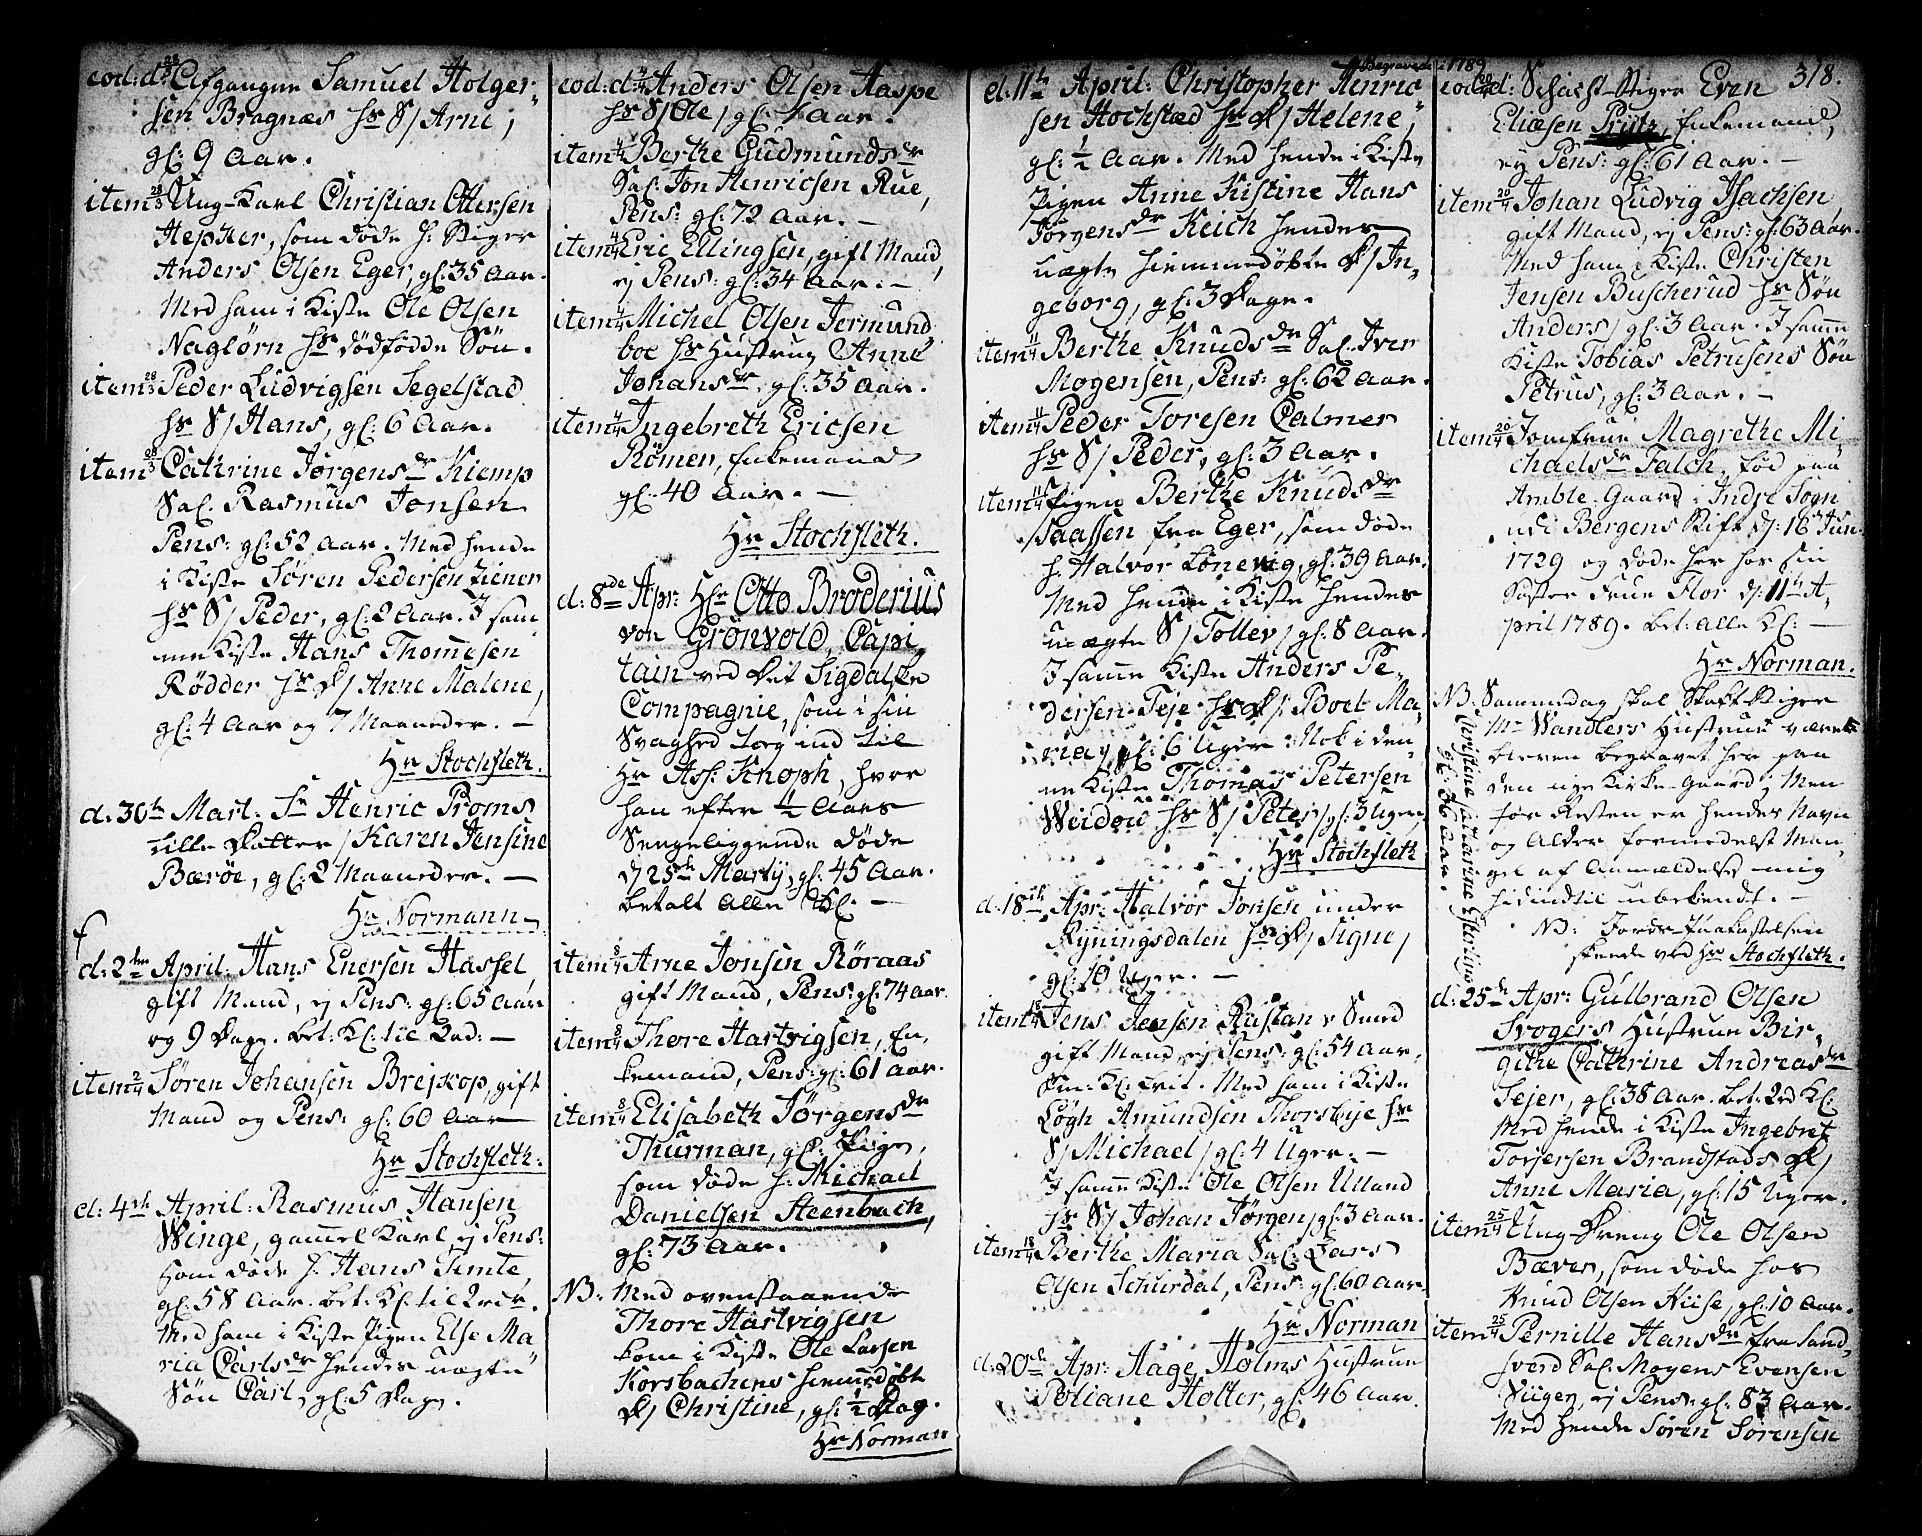 eod: d: 28/3 Afgangne Samuel Holger-
sen Bragnæs hs S/ Arne,
gl: 9 Aar.
item 28/3 Ung-Karl Christian Ottersen
Hepker, som døde h. Stiger
Anders Olsen Eger, gl: 35 Aar.
Med ham i Kiste Ole Olsen
Naglörn hs dödfödde Sön.
item 28/3 Peder Ludvigsen Segelstad
hs S/ Hans, gl: 6 Aar.
item 28/3 Cathrine Jørgensdr Kiemp
Sal. Rasmus Jonsen
Pens: gl: 52 Aar. Med hende
i Kiste Søren Pedersen Ziener
hs S/ Peder, gl: 2 Aar. I sam-
me Kiste Hans Thomesen
Rødder hs D/ Anne Malene,
gl: 4 Aar og 7 Maaneder. —
Hr Stochfleth.
d: 30th Mart: Sr Henric Proms
lille Datter / Karen Jensine
Bærøe, gl: 2 Maaneder. —
Hr Normann
d: 2den April: Hans Enersen Hassel,
gift Mand, ej Pens: gl: 65 Aar
og 9 Dage. bet: Kl: til 2rd: —
item 2/4 Søren Johansen Brejkop, gift
Mand og Pens: gl: 60 Aar
Hr Stochfleth.
d: 4th April: Rasmus Hansen
Winge, gammel Karl, ej Pens:
som døde h. Hans Timte,
gl: 58 Aar. bet: Kl: til 2rdr.
Med ham i Kiste Pigen Else Ma
ria Carlsdr hendes uægte
Søn Carl, gl: 5 Dage.
eod: d: 4/4 Anders Olsen Haspe
hs S/ Ole, gl: 1 Aar.
item 4/4 Berthe Gudmundsdr
Sal. Jon Henricsen Rue,
Pens: gl: 72 Aar. —
item 4/4 Eric Ellingsen, gift Mand,
ej Pens: gl: 34 Aar. —
item 4/4 Michel Olsen Jermund
boe hs Hustrue Anne
Johansdr, gl: 35 Aar.
item 4/4 Ingebreth Ericsen
Römen, Enkemand
gl: 40 Aar. —
Hr Stochfleth.
d: 8de Apr: Hr Otto Broderius
von Grönvold, Capi
tain ved det Sigdalske
Compagnie, som i sin
Svaghed tog ind til
Hr Ass: Knoph, hvor
han efter 1/2 Aars
Sengeliggende döde
d 25th Martij, gl: 45 Aar.
betalt alle Kl. —
item 8/4 Arne Jonsen Röraas
gift Mand, Pens: gl: 74 Aar.
item 8/4 Thore Hartvigsen, En,
kemand, Pens: gl: 61 Aar.
item 8/4 Elisabeth Jörgensdr
Thurman, gl: Pige,
som døde h. Michael
Danielsen Steenbach,
gl: 73 Aar.
NB: Med ovenstaaende
Thore Hartvigsen
kom i Kiste Ole Larsen
Korsbachens hiemedøbt
D/ Christine, gl: 1/2 Dag.
Hr Norman
Begravede 1789
d: 11th April: Christopher Henric
sen Hochstæd hs D/ Helene,
gl: 1/2 Aar. Med hende i Kiste
Pigen Anne Kistine Hans
Jörgensdr Keich hendes
uægte hiemmedöbte D/ In,
geborg, gl: 3 Dage.
item 11/4 Berthe Knudsdr Sal. Iver
Mogensen, Pens: gl: 62 Aar.
item 11/4 Peder Toresen Calmer
hs S/ Peder, gl: 3 Aar.
item 11/4 Pigen Berthe Knudsdr
Saassen fra Eger, som døde
h. Halvor Lonevig, gl: 39 Aar.
Med hende i Kiste hendes
uægte S/ Tollev/ gl: 8 Aar.
I samme Kiste Anders Pe,
dersen Teje hs D/ Boel Ma,
ria, gl: 6 Uger. Nok i den,
ne Kiste Thomas Petersen
Weidow hs S/ Peter/ gl: 3 Uger.
Hr Stochfleth
d: 18th Apr: Halvor Jonsen under
Ryningsdalen hs D/ Signe,
gl: 10 Uger. —
item 18/4 Jens Jensen Rustan v Smed
gift Mand, ej Pens: gl: 54 Aar,
Kl: frit. Med ham i Kiste
Lögh Amundsen Thorsbye hs
S/ Michael/ gl: 4 Uger. —
I samme Kiste Ole Olsen Ulland
hs S/ Johan Jörgen/ gl: 3 Aar.
item 18/4 Berthe Maria Sal: Lars
Olsen Schurdal, Pens: gl: 60 Aar.
Hr Norman
d: 20de Apr: Aage Holms Hustrue
Poliane Holter, gl: 46 Aar.
318.
eod: d: 20/4 Schacht-Stiger Even
Eliæsen Prytz, Enkemand,
ej Pens: gl: 61 Aar. —
item 20/4 Johan Ludvig Isachsen,
gift Mand, ej Pens: gl: 63 Aar.
Med ham i Kiste Christen
Jensen Buscherud hs Sön
Anders/ gl: 3 Aar. I samme
Kiste Tobias Petrusens Sön
Petrus, gl: 3 Aar. —
item 20/4 Jomfrue Magrethe Mi,
chaelsdr Falch, fød paa
Amble-Gaard i Indre Sogn
udi Bergens Stift d: 16 Jun:
1729 og döde her hos sin
Søster Frue Flor d: 11th A-
pril 1789. bet: alle Kl: —
Hr Norman.
NB: Sammedag skal Skaft-Stiger
Mr Wandlers Hustrue være
bleven begravet her paa
den nye Kirke-Gaard, Men
for Resten er hendes Navn
og Alder formedelst Man,
gel af Anmeldelse mig
hidindtil ubekendt. —
NB: Jords-Paakastelsen
skeede ved Hr Stochfleth.
Christine Catharine Esterling
gl: 36 Aar.
d: 25th Apr: Gulbrand Olsen
Svogers Hustrue Bir-
githe Cathrine Andreasdr
Sejer, gl: 38 Aar. bet: 2rd Kl:
Med hende i Kiste Ingebret
Torjersen Brandstads D/
Anne Maria, gl: 15 Uger.
item 25/4 Ung-Dreng Ole Olsen
Bæver, som døde hos
Knud Olsen Kiise, gl: 10 Aar.
item 25/4 Pernille Hansdr fra Sand,
sverd Sal. Mogens Evensen
Siiger, ej Pens: gl: 83 Aar.
Med hende Søren Sørensen